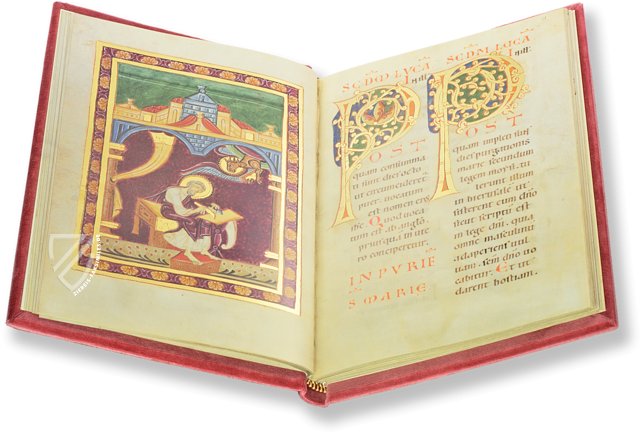 SCDM LVCA
IN ILL
POST
quam consumma
ti sunt dies octo
ut circumcideret
puer. vocatum
est nomen eius
Quod voca
tum est ab anglo
priusquam in ute
ro conciperet
IN PVRIF
S MARIE
SCDM LVCA
IN ILL
POST
quam impleti sunt
dies purgationis
marie secundum
legem moysi. tu
lerunt illum
in hierusale ut
sisterent eum dno
sicut scriptu est
in lege dni. quia
omne masculinu
adaperiens uul
uam. scm dno uo
cabitur. Et ut
darent hostiam.